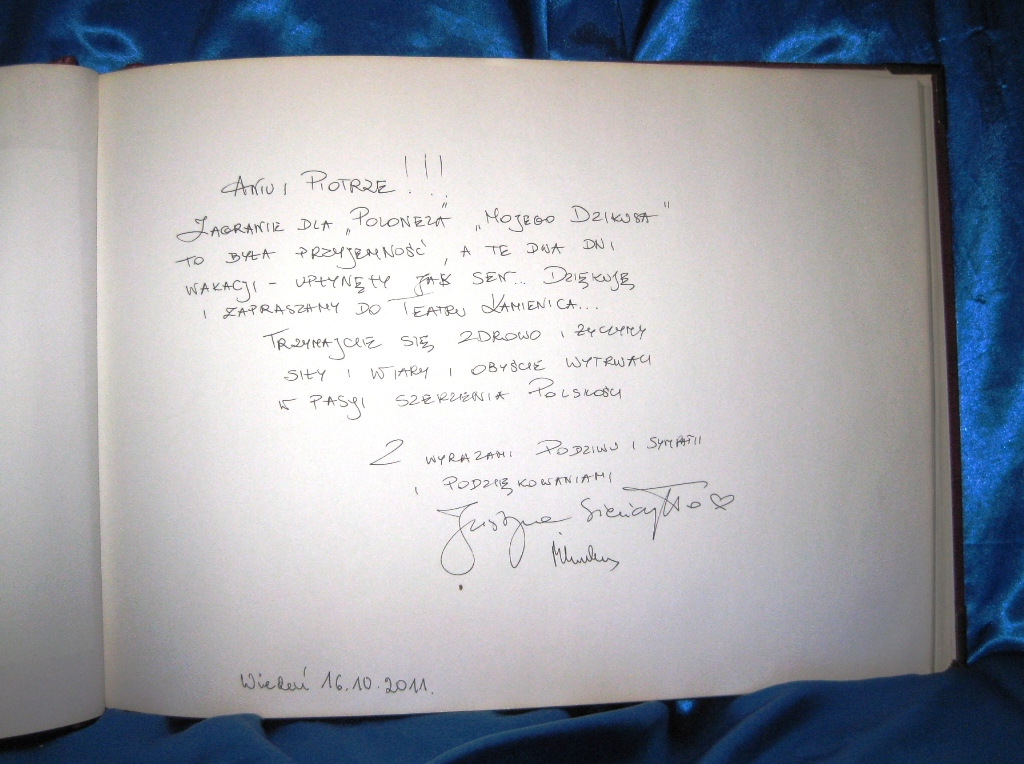 Aniu i Piotrze !!!
Zagranie dla „Poloneza” „Mojego Dzikusa”
to była przyjemność, a te dwa dni
wakacji - upłynęły jak sen... Dziękuję
i zapraszamy do Teatru Kamienica...
Trzymajcie się zdrowo i życzymy
siły i wiary i obyście wytrwali
w pasji szerzenia Polskości
Z wyrazami podziwu i sympatii
i podziękowaniami
Justyna Sieńczyłło
Wiedeń 16.10.2011.